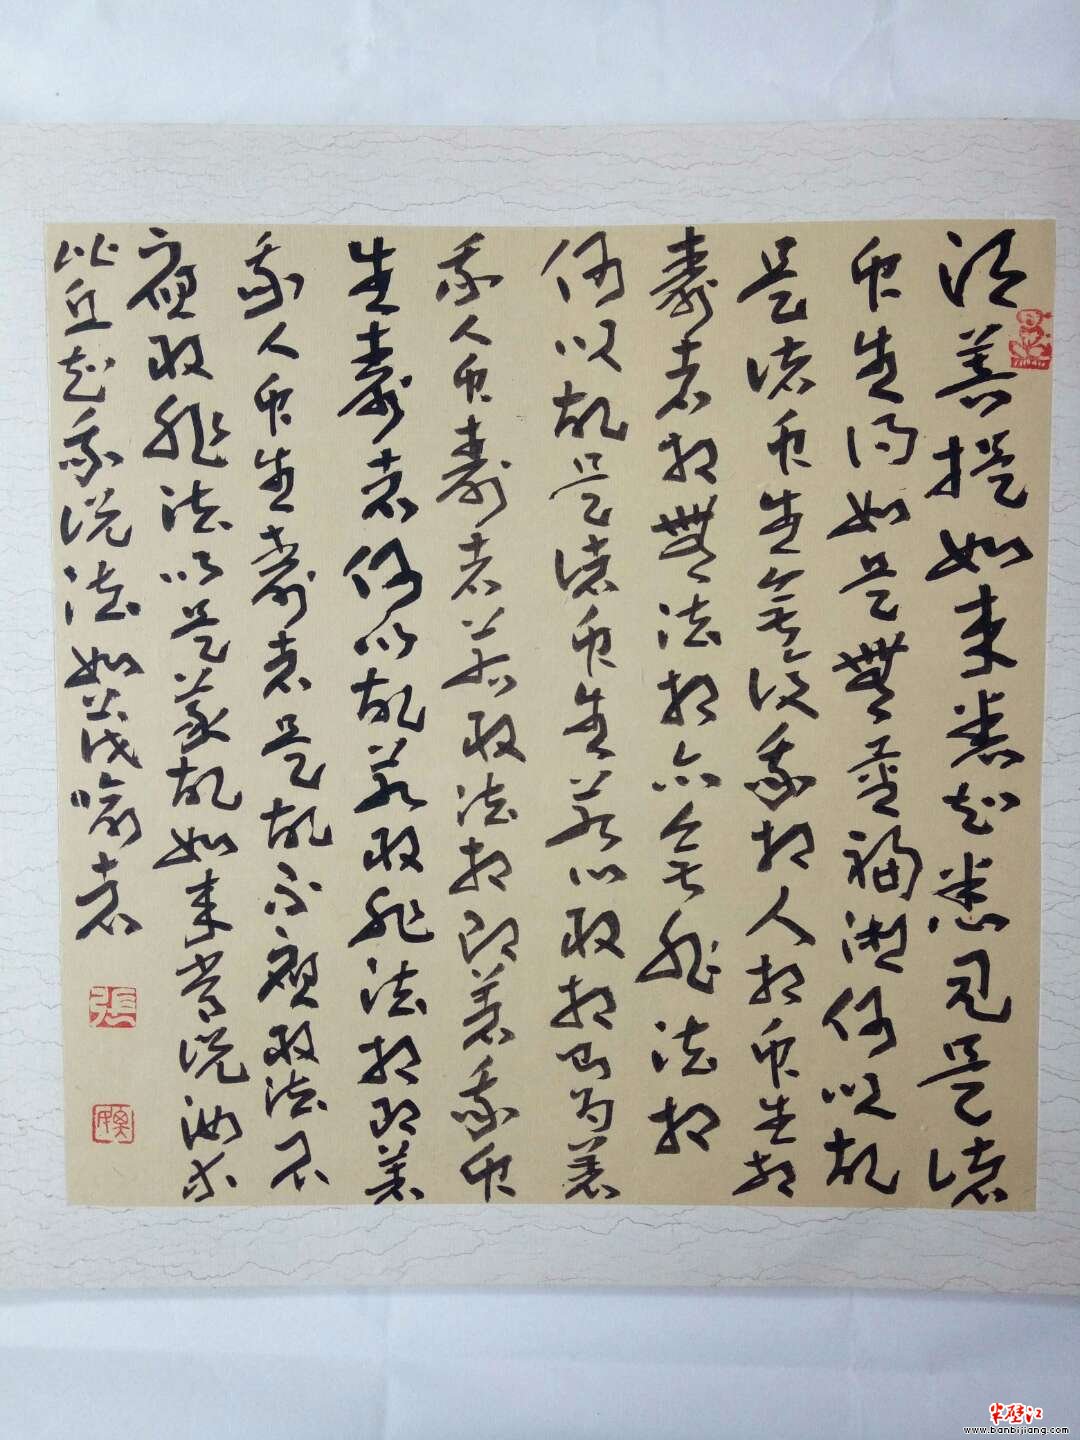 须菩提如来悉知悉见是诸
众生得如是無量福德何以故
是诸众生無復我相人相众生相
寿者相無法相亦無非法相
何以故是诸众生若心取相即为著
我人众寿者若取法相即著我众
生寿者何以故若取非法相即著
我人众生寿者是故不應取法不
應取非法以是義故如来常说汝等
比丘知我说法如筏喻者
張
半壁江
www.banbijiang.com